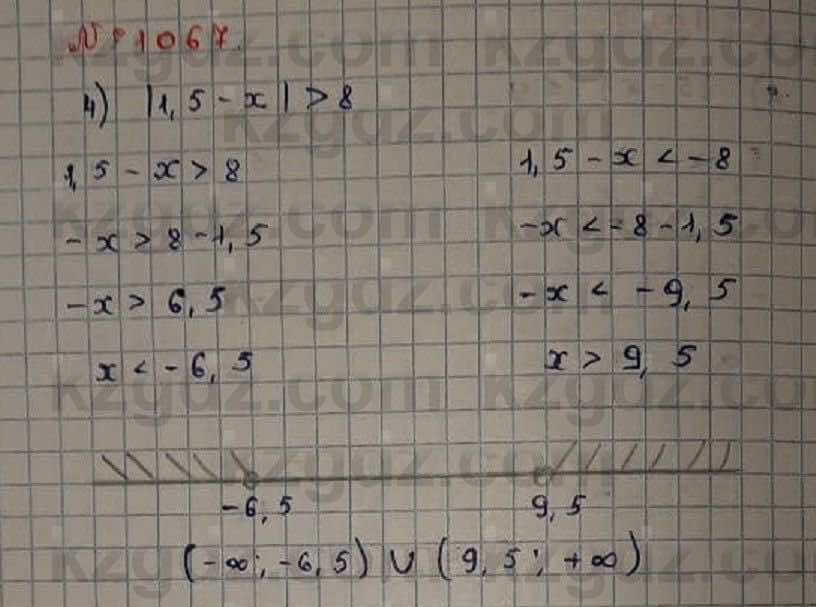 № 1067.
4) |1,5 - x| > 8
1,5 - x > 8
1,5 - x < -8
- x > 8 - 1,5
-x < -8 - 1,5
-x > 6,5
-x < -9,5
x < -6,5
x > 9,5
-6,5 9,5
(-∞; -6,5) ∪ (9,5; +∞)
kzgdz.com